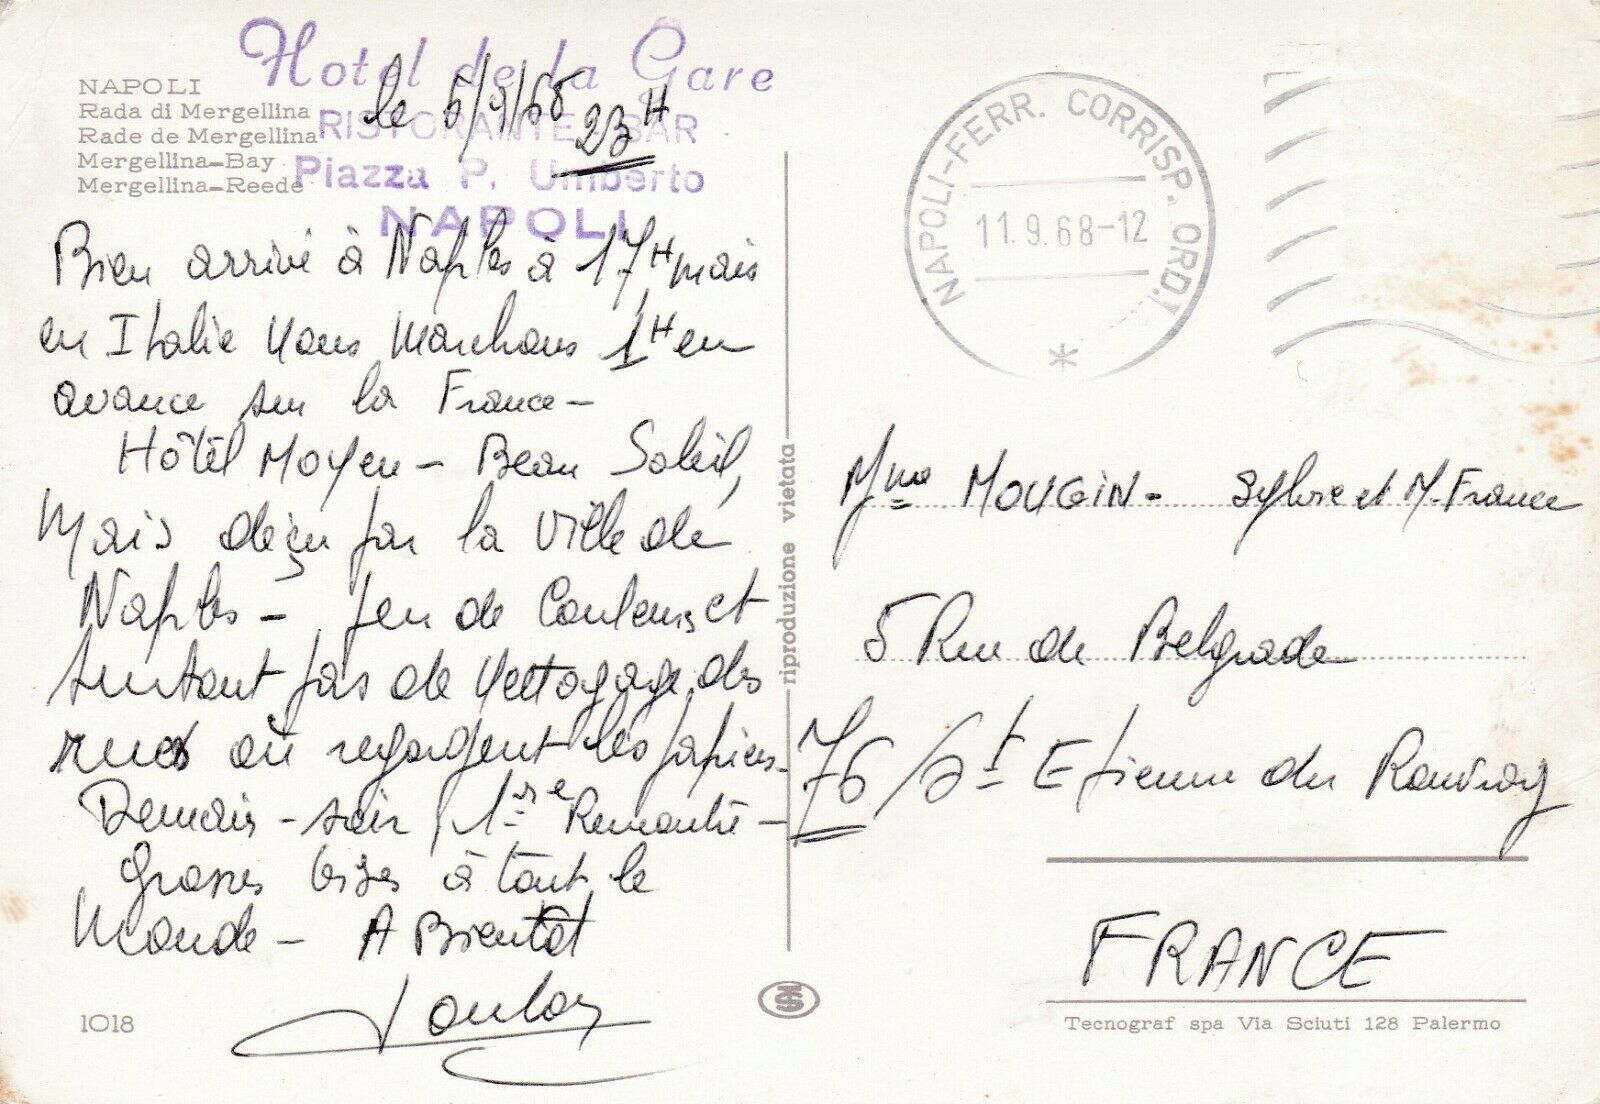 Hotel de la Gare
RISTORANTE BAR
Piazza P. Umberto
NAPOLI
NAPOLI
Rada di Mergellina
Rade de Mergellina
Mergellina-Bay
Mergellina-Reede
le 5/9/68 23H
Bien arrivé à Naples à 17H mais
en Italie nous marchons 1H en
avance sur la France -
Hôtel Moyen - Beau Soleil,
Mais déçu par la ville de
Naples - peu de Couleurs et
surtout pas de nettoyage des
rues où regorgent les papiers -
Demain - soir 1re Remontée -
Grosses bises à tout le
Monde - A Bientôt
1018
riproduzione vietata
NAPOLI-FERR. CORRISP. ORD.
11.9.68-12
Mme MOUGIN - Sylvie et M-France
5 Rue de Belgrade
76/St Etienne du Rouvray
FRANCE
Tecnograf spa Via Sciuti 128 Palermo